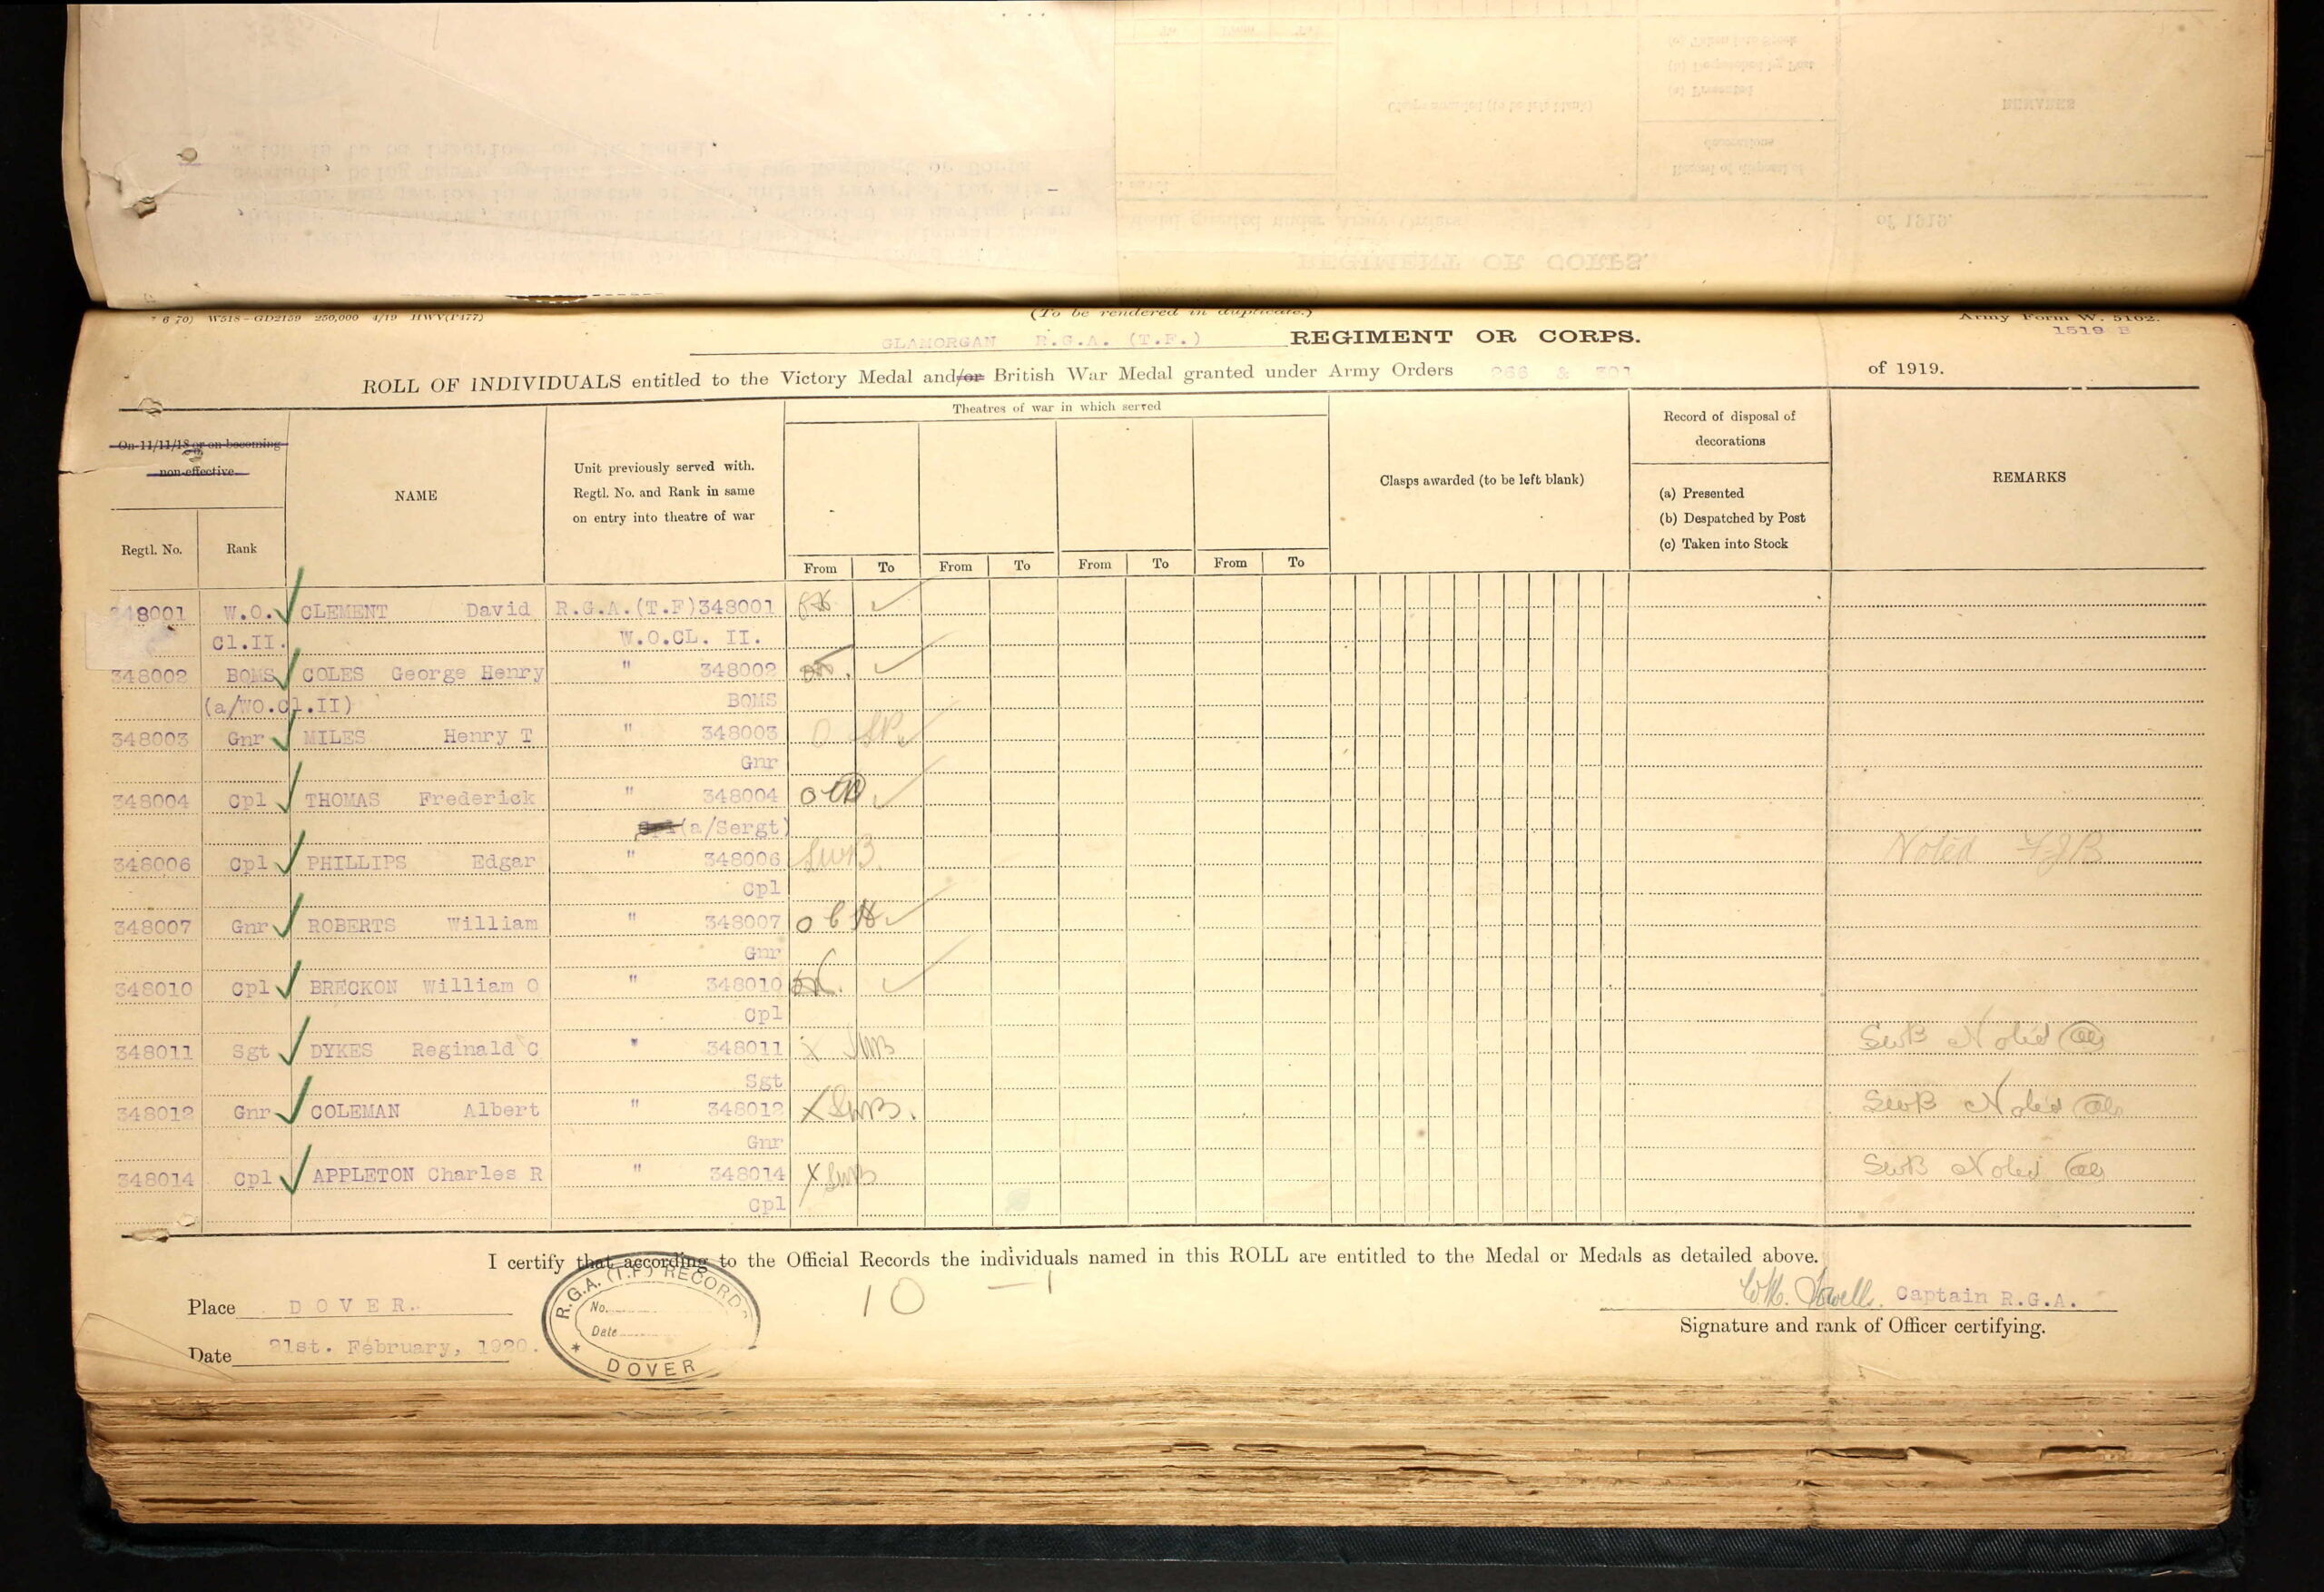 W518—GD2159 250,000 4/19 HWV(P477)
(To be rendered in duplicate.)
Army Form W. 5102.
1519 B
GLAMORGAN R.G.A. (T.F.) REGIMENT OR CORPS.
ROLL OF INDIVIDUALS entitled to the Victory Medal and/or British War Medal granted under Army Orders 266 & 301 of 1919.
On 11/11/18 or on becoming
non-effective
Regtl. No.
Rank
NAME
Unit previously served with.
Regtl. No. and Rank in same
on entry into theatre of war
Theatres of war in which served
From To From To From To From To
Clasps awarded (to be left blank)
Record of disposal of
decorations
(a) Presented
(b) Despatched by Post
(c) Taken into Stock
REMARKS
348001 W.O. CLEMENT David R.G.A.(T.F)348001
Cl.II. W.O.CL. II.
348002 BQMS COLES George Henry " 348002
(a/WO.cl.II) BQMS
348003 Gnr MILES Henry T " 348003
Gnr
348004 Cpl THOMAS Frederick " 348004
(a/Sergt)
348006 Cpl PHILLIPS Edgar " 348006 SWB Noted
Cpl
348007 Gnr ROBERTS William " 348007
Gnr
348010 Cpl BRECKON William O " 348010
Cpl
348011 Sgt DYKES Reginald C " 348011 X SWB SWB Noted
Sgt
348012 Gnr COLEMAN Albert " 348012 X SWB. SWB Noted
Gnr
348014 Cpl APPLETON Charles R " 348014 X SWB SWB Noted
Cpl
I certify that according to the Official Records the individuals named in this ROLL are entitled to the Medal or Medals as detailed above.
10 — 1
Place DOVER.
R.G.A. (T.F) RECORDS
No.
Date
DOVER
Captain R.G.A.
Signature and rank of Officer certifying.
Date 21st. February, 1920.